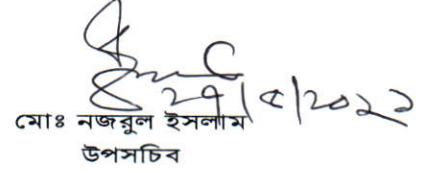 ২৭/৫/২০২২
মোঃ নজরুল ইসলাম
উপসচিব